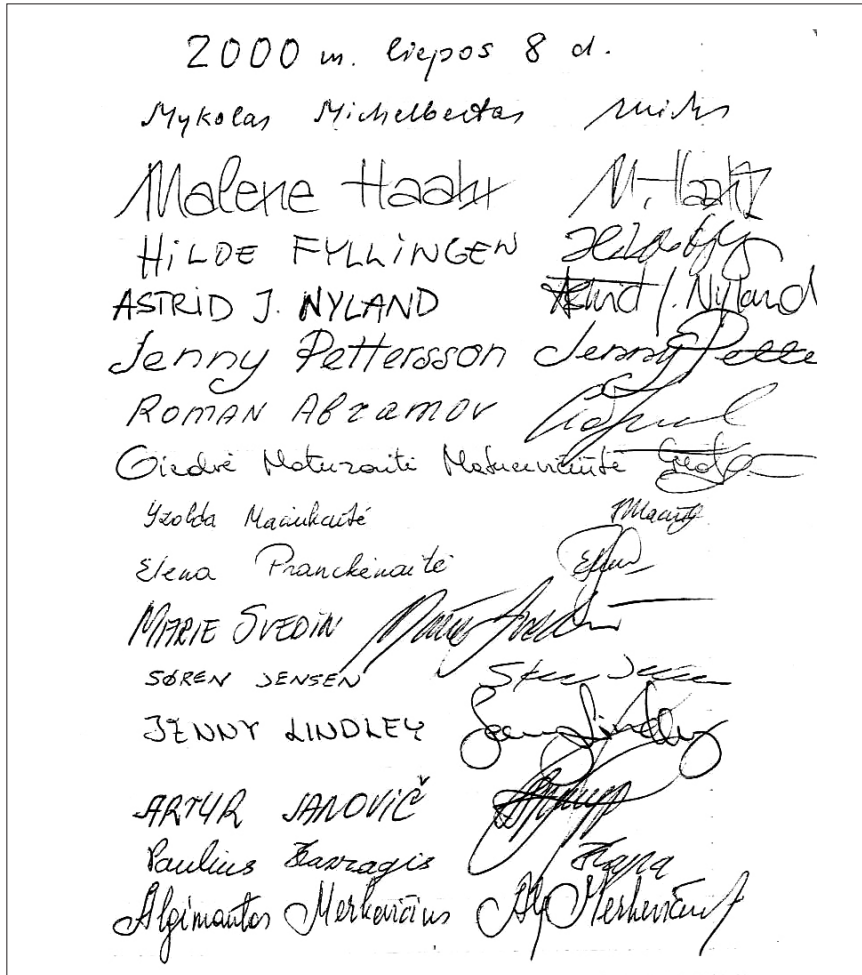 2000 m. liepos 8 d.
Mykolas Michelbertas
Malene Haahr M. Haahr
HILDE FYLLINGEN
ASTRID J. NYLAND Astrid J. Nyland
Jenny Pettersson Jenny Pette
ROMAN ABRAMOV
Giedrė Motuzaitė Matuzevičiūtė
Yzolda Maciukaitė
Elena Pranckėnaitė
MARIE SVEDIN Marie Svedin
SØREN JENSEN
JENNY LINDLEY Jenny Lindley
ARTUR JANOVIČ
Paulius
Algimantas Merkevičius Alg Merkevičius